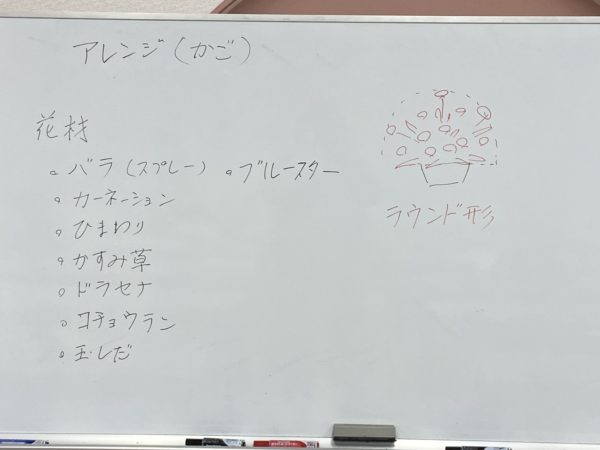 アレンジ(かご)
花材
。バラ(スプレー) 。ブルースター
。カーネーション
。ひまわり
。かすみ草
。ドラセナ
。コチョウラン
。玉しだ
ラウンド形